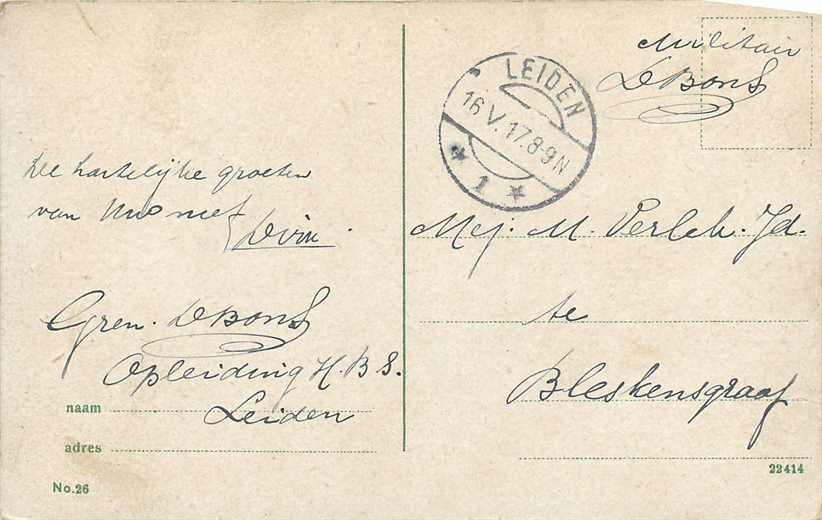 De hartelijke groeten
van Uw neef
Gren. D Bons
Opleiding H.B.S.
Leiden
naam
adres
No.26
LEIDEN
16 V.17.8-9N
1
Militair
D Bons
Mej. M. Verlek. Jd.
te
Bleskensgraaf
22414